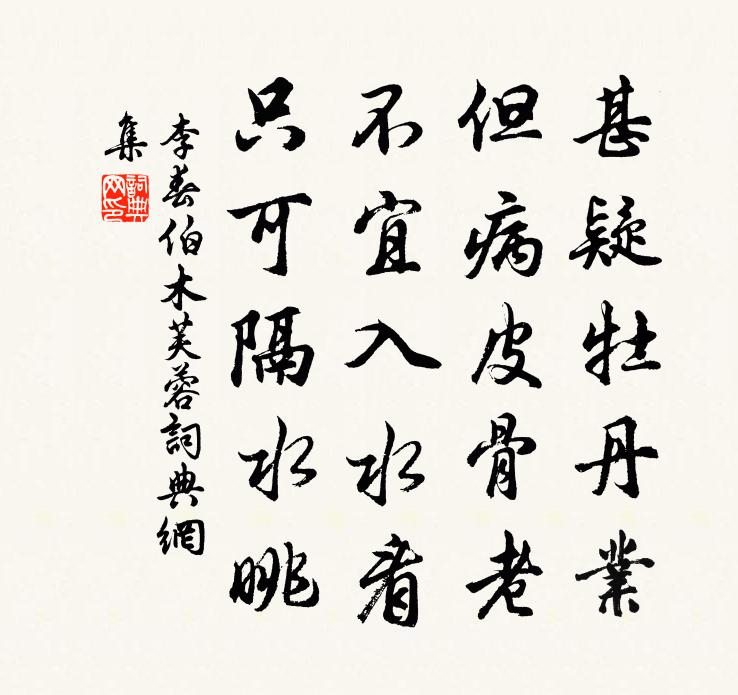 甚疑牡丹業
但病皮骨老
不宜入水看
只可隔水眺
李春伯木芙蓉詞典網
集
詞典網印